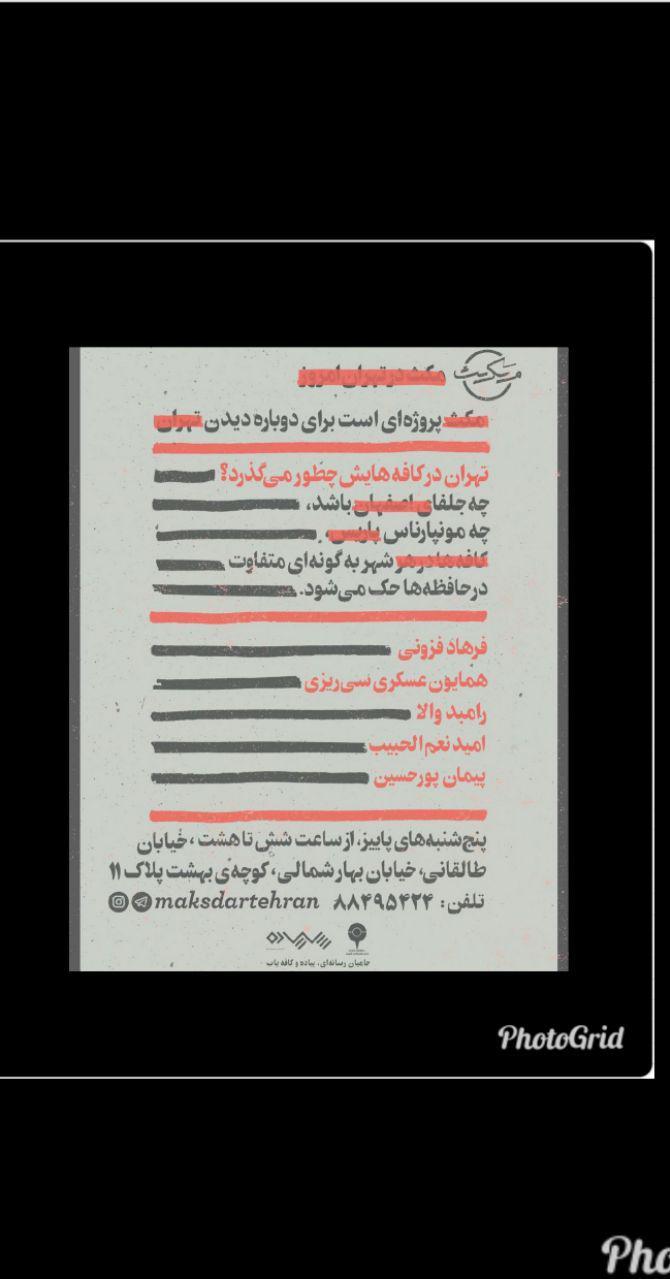 مکث
مکث در تهران امروز
مکث پروژه‌ای است برای دوباره دیدن تهران
تهران در کافه هایش چطور می‌گذرد؟
چه جلفای اصفهان باشد،
چه مونپارناس پاریس
کافه‌ها در هر شهر به گونه‌ای متفاوت
در حافظه‌ها حک می‌شود.
فرهاد فزونی
همایون عسکری سی‌ریزی
رامبد والا
امید نعم‌الحبیب
پیمان پورحسین
پنج‌شنبه‌های پاییز، از ساعت شش تا هشت، خیابان
طالقانی، خیابان بهار شمالی، کوچه‌ی بهشت پلاک ۱۱
تلفن: ۸۸۴۹۵۴۲۴ maksdartehran
حامیان رسانه‌ای، پیاده و کافه یاب
PhotoGrid
Pho